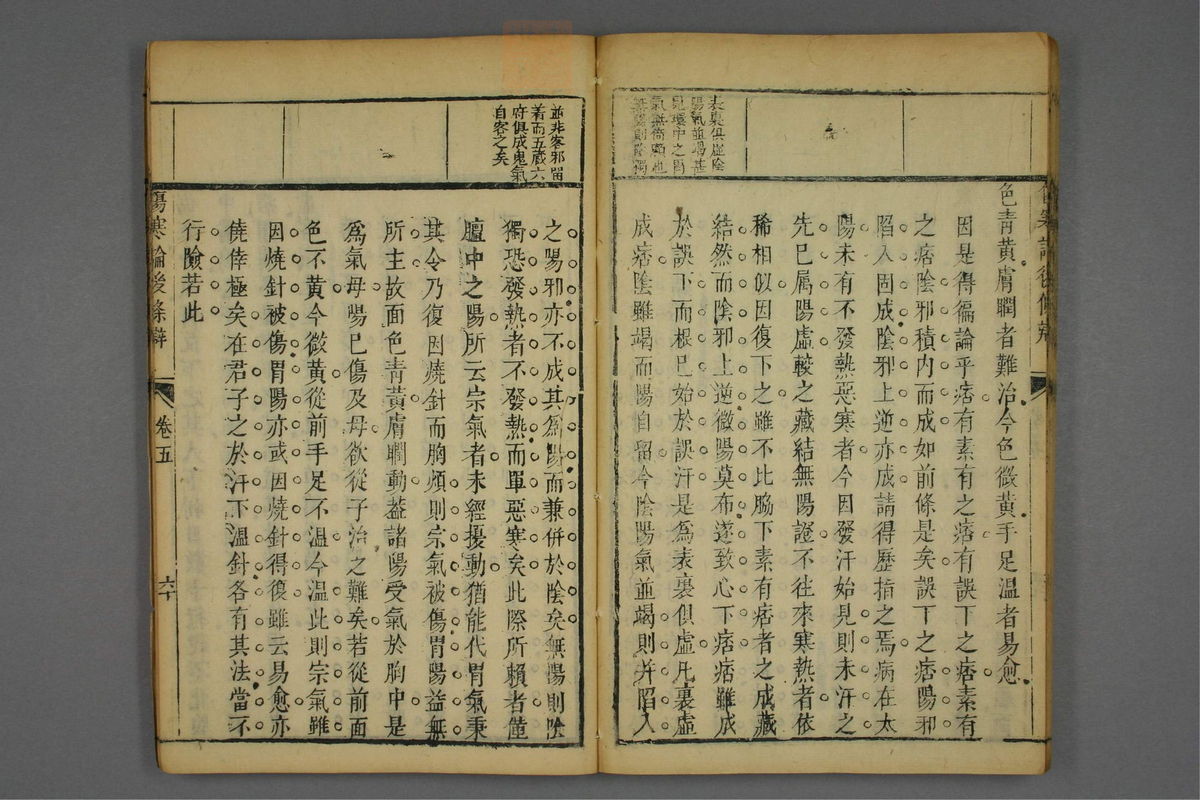 表裏俱虛陰
陽氣並竭甚
見環中之間
氣無倚賴也
無陽則陰獨
色青黃膚瞤者難治今色微黃手足溫者易愈
因是得徧論乎痞有素有之痞有誤下之痞素有
之痞陰邪積內而成如前條是矣誤下之痞陽邪
陷入固成陰邪上逆亦成請得歷指之焉病在太
陽未有不發熱惡寒者今因發汗始見則未汗之
先已屬陽虛較之藏結無陽證不往來寒熱者依
稀相似因復下之雖不比脇下素有痞者之成藏
結然而陰邪上逆微陽莫布遂致心下痞痞雖成
於誤下而根已始於誤汗是為表裏俱虛凡裏虛
成痞陰雖竭而陽自留今陰陽氣並竭則并陷入
並非客邪留
著而五藏六
府俱成鬼氣
自客之矣
之陽邪亦不成其為陽而兼併於陰矣無陽則陰
獨恐發熱者不發熱而單惡寒矣此際所賴者僅
膻中之陽所云宗氣者未經擾動猶能代胃氣秉
其令乃復因燒針而胸煩則宗氣被傷胃陽益無
所主故面色青黃膚瞤動蓋諸陽受氣於胸中是
為氣母陽巳傷及母欲從子治之難矣若從前面
色不黃今微黃從前手足不溫今溫此則宗氣雖
因燒針被傷胃陽亦或因燒針得復雖云易愈亦
僥倖極矣在君子之於汗下溫針各有其法當不
行險若此
傷寒論後條辯
卷五
六十